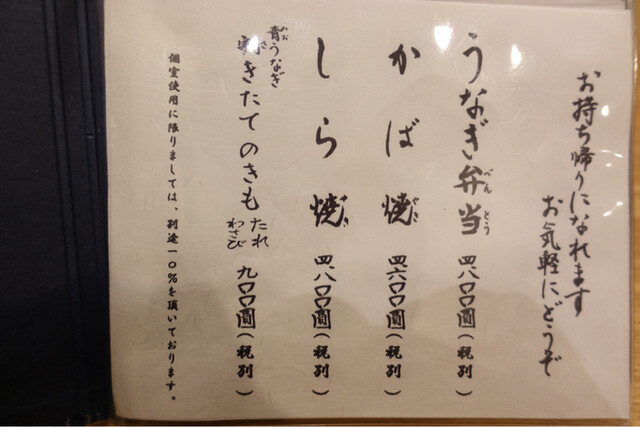 お持ち帰りになれます
お気軽にどうぞ
うなぎ弁当 四八〇〇圓(税別)
べんとう
かば焼 四六〇〇圓(税別)
やき
しら焼 四八〇〇圓(税別)
やき
青うなぎ
きたてのきも たれ わさび 九〇〇圓(税別)
個室使用に限りましては、別途一〇%を頂いております。